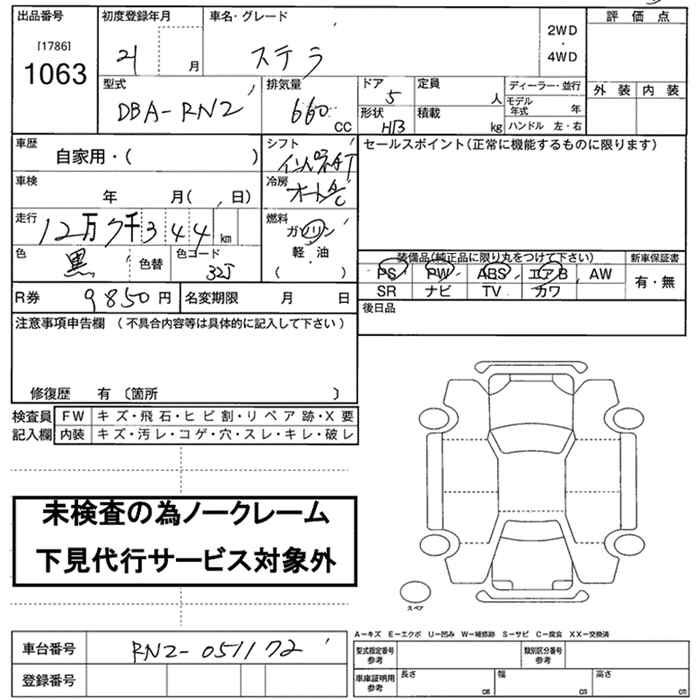 出品番号 初度登録年月 車名・グレード 評価点
[1786] 21 月 ステラ 2WD・4WD
1063
型式 排気量 ドア 定員 ディーラー・並行 外装 内装
DBA-RN2 660 CC 5 人 モデル年式 年
形状 積載 ハンドル 左・右
HB kg
車歴 シフト セールスポイント(正常に機能するものに限ります)
自家用・( ) インパネAT
車検 冷房
年 月( , 日) オートA/C
走行 燃料
12万7千344 km ガソリン
色 色替 色コード 軽・油
黒 32J ( )
装備品(純正品に限り丸をつけて下さい) 新車保証書
PS PW ABS エアB AW 有・無
SR ナビ TV カワ
R券 9850円 名変期限 月 日 後日品
注意事項申告欄 (不具合内容等は具体的に記入して下さい)
修復歴 有 〔箇所 〕
検査員 FW キズ・飛石・ヒビ割・リペア跡・X要
記入欄 内装 キズ・汚レ・コゲ・穴・スレ・キレ・破レ
未検査の為ノークレーム
下見代行サービス対象外
スペア
A-キズ E-エクボ U-凹み W-補修跡 S-サビ C-腐食 XX-交換済
車台番号 RN2-051172 型式指定番号 参考 類別区分番号 参考
登録番号 車庫証明用 参考 長さ cm 幅 cm 高さ cm